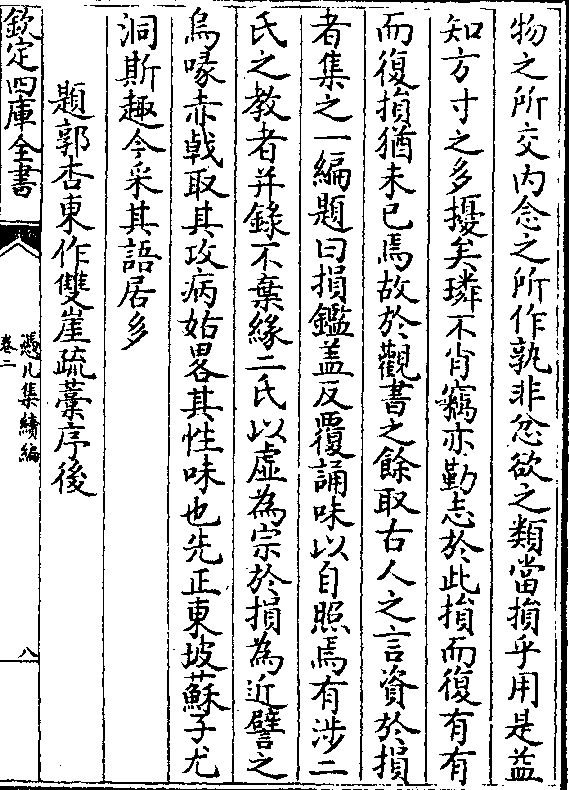 物之所交内念之所作孰非忿欲之類當損乎用是益
知方寸之多擾矣璘不肖竊亦勤志於此損而復有有
而復損猶未已焉故於觀書之餘取古人之言資於損
者集之一編題曰損鑑盖反覆誦味以自照焉有涉二
氏之教者并錄不棄緣二氏以虛為宗於損為近譬之
烏喙赤㦸取其攻病姑畧其性味也先正東坡蘇子尤
洞斯趣今采其語居多
題郭杏東作雙崖疏藳序後
欽定四庫全書
憑几集續編
卷二
八